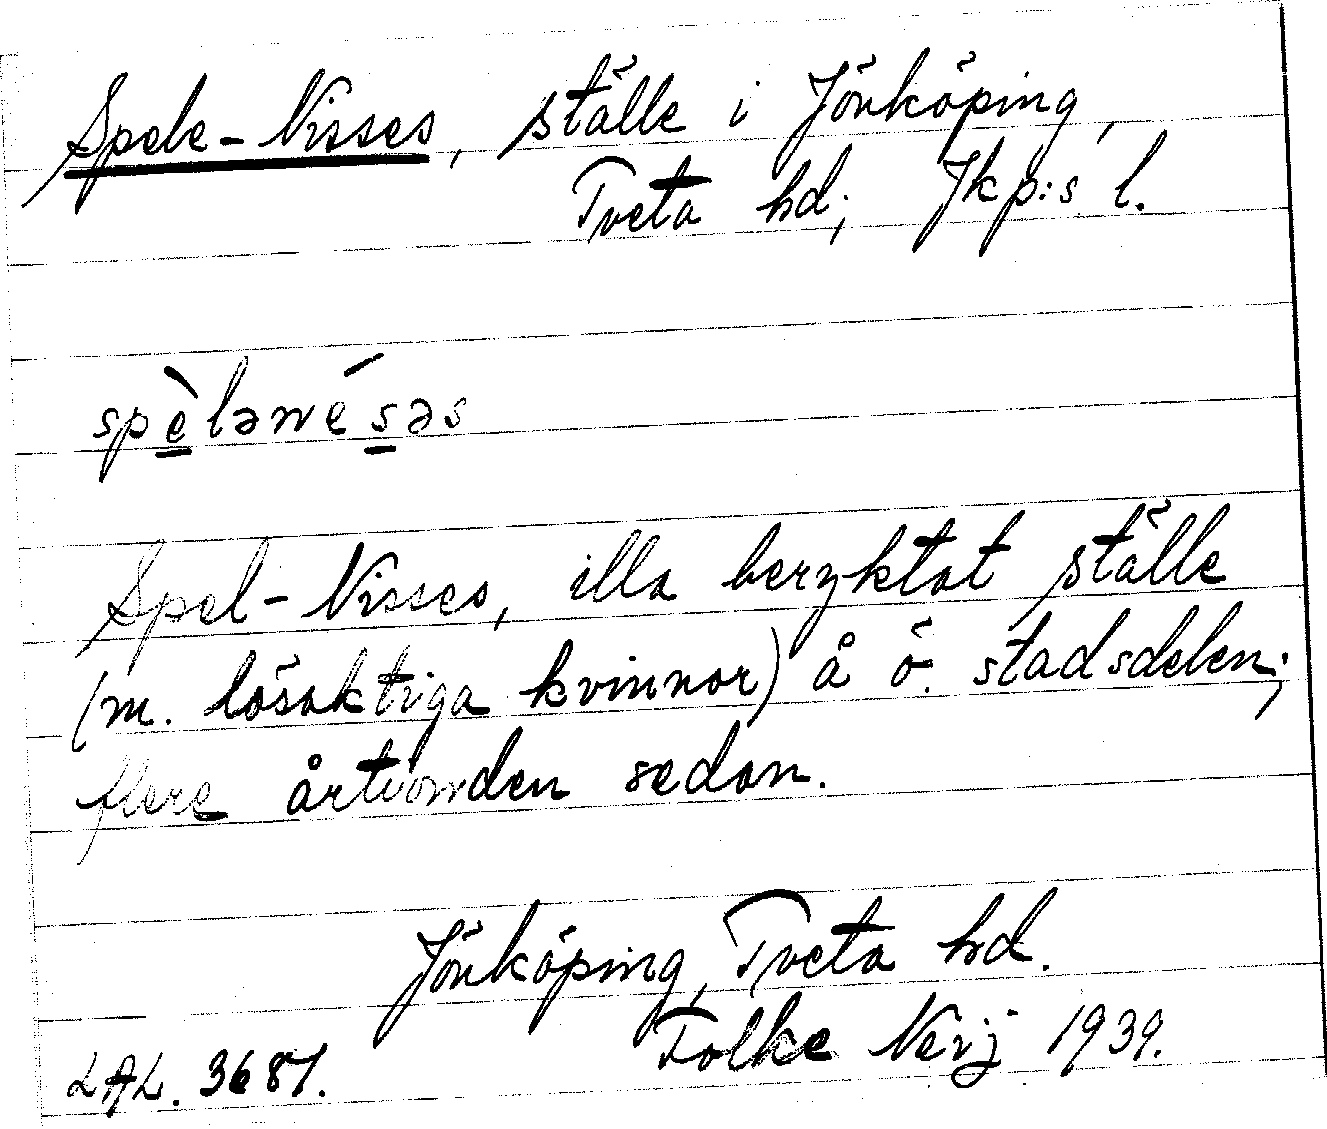 Spele-Nisses, ställe i Jönköping,
Tveta hd; Jkp:s l.
spèlənésəs
Spel-Nisses, illa beryktat ställe
(m. lösaktiga kvinnor) å ö. stadsdelen;
flere årtionden sedan.
Jönköping, Tveta hd.
Folke Nerij 1939.
LAL. 3687.